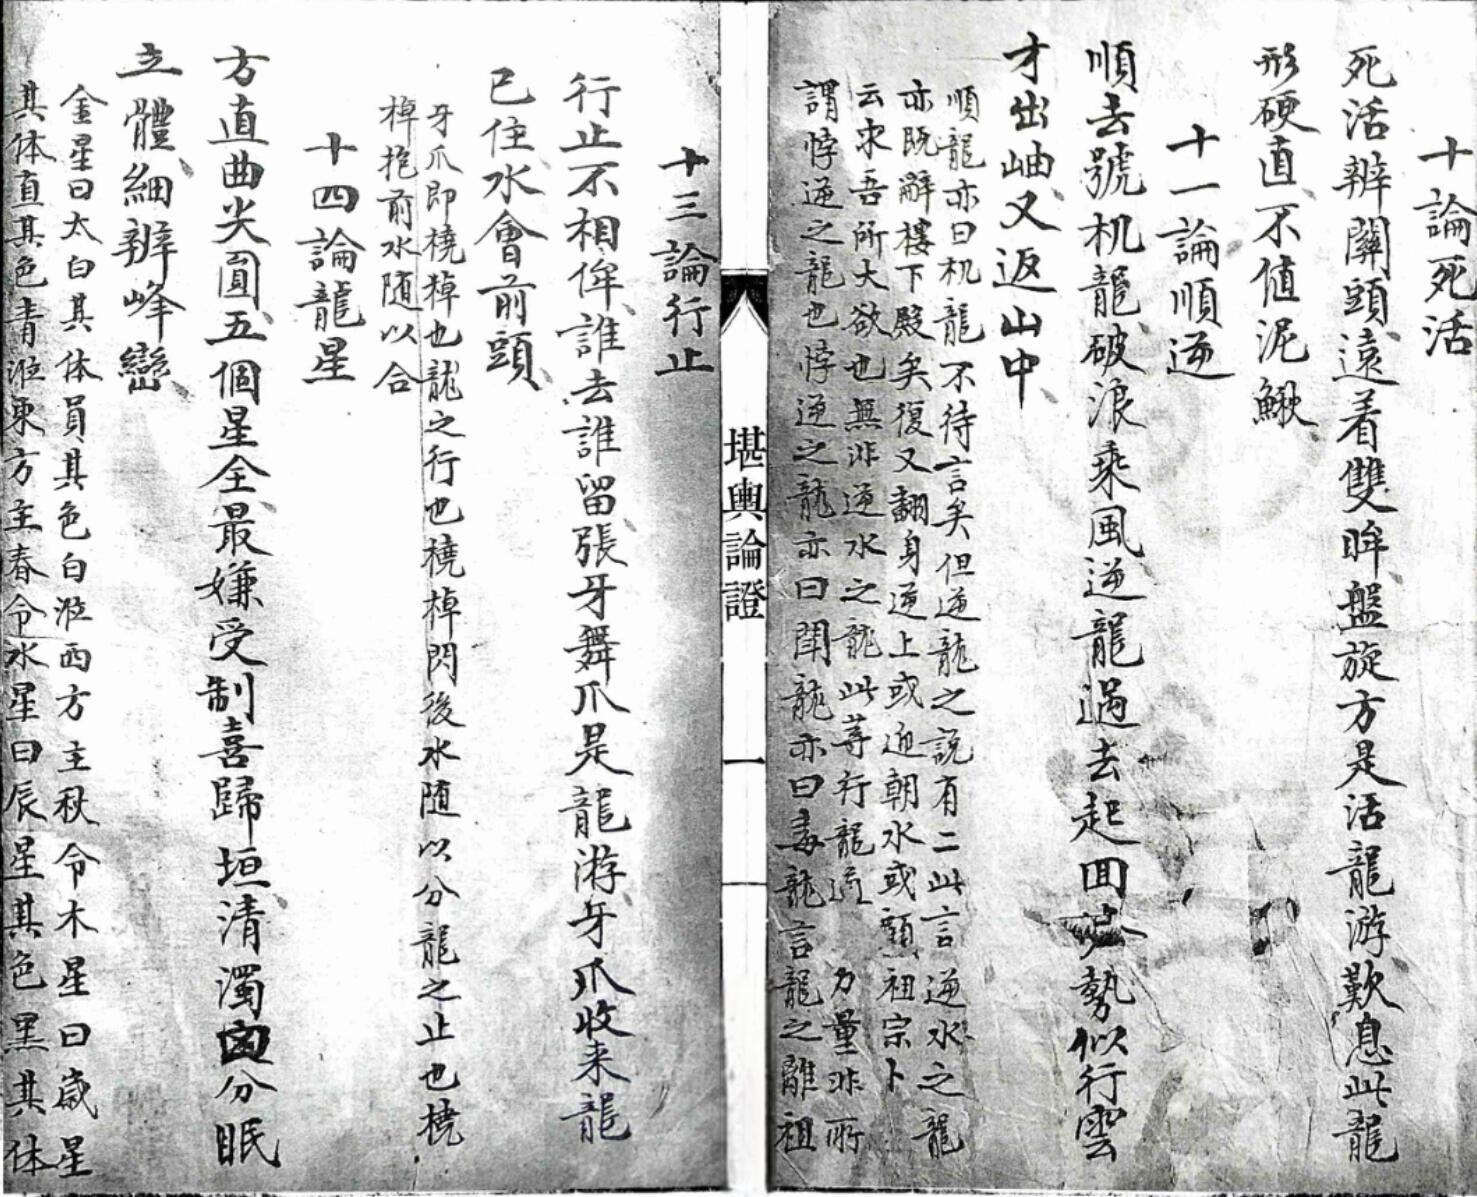 十論死活
死活辨關頭遠着雙眸盤旋方是活龍游歎息此龍
形硬直不值泥鰍
十一論順逆
順去號机龍破浪乘風逆龍過去起回勢似行雲
才出岫又返山中
順龍亦曰机龍不待言矣但逆龍之說有二此言逆水之龍
亦既辭樓下殿矣復又翻身逆上或迎朝水或顧祖宗卜
云求吾所大欲也無非逆水之龍此等行龍力量非所
謂悖逆之龍也悖逆之龍亦曰閗龍亦曰毒龍言龍之離祖
堪輿論證
一
十三論行止
行止不相侔誰去誰留張牙舞爪是龍游牙爪收来龍
已住水會前頭
牙爪即橈棹也龍之行也橈棹閃後水随以分龍之止也橈
棹抱前水随以合
十四論龍星
方直曲尖圓五個星全最嫌受制喜歸垣清濁分眠
立體細辨峰巒
金星曰太白其体員其色白涖西方主秋令木星曰歲星
其体直其色青涖東方主春令水星曰辰星其色黑其体